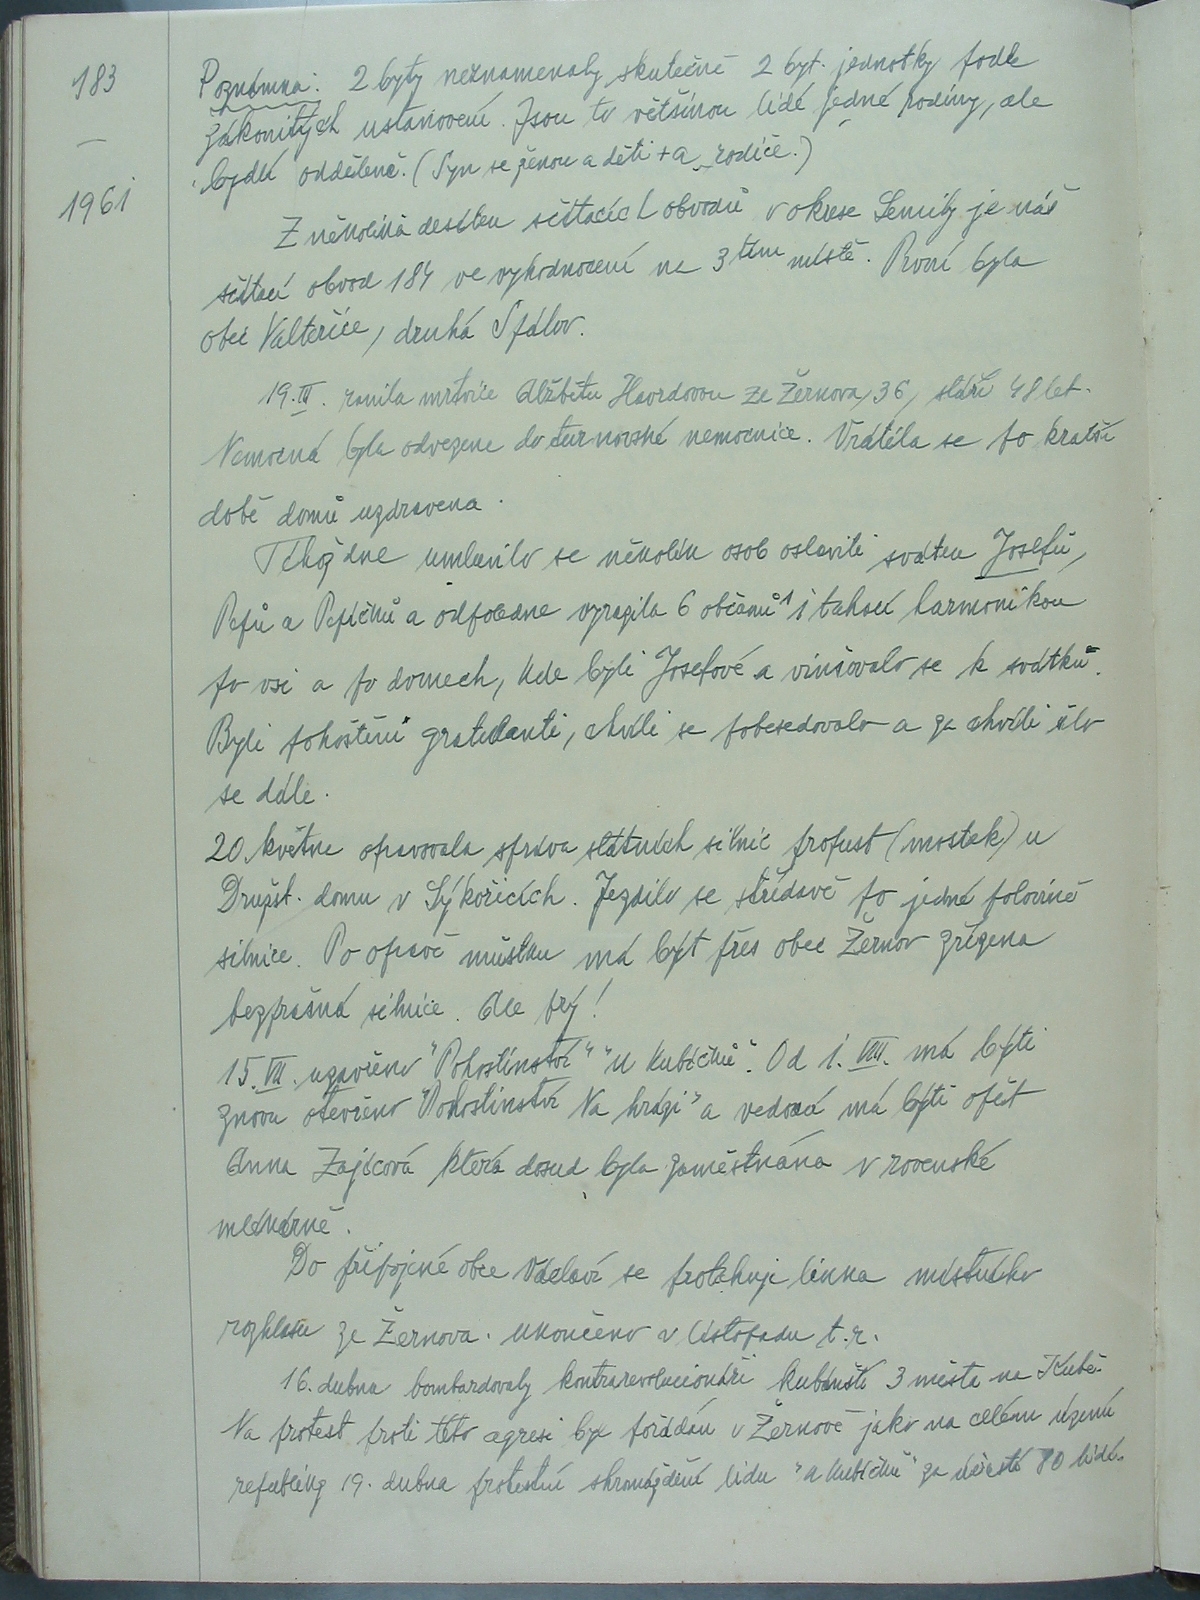 183
—
1961
Poznámka: 2 byty neznamenaly skutečně 2 byt. jednotky podle
zákonitých ustanovení. Jsou to většinou lidé jedné rodiny, ale
bydlí odděleně. (Syn se ženou a děti + a rodiče.)
Z několika desítek sčítacích obvodů v okrese Semily je náš
sčítací obvod 184 ve vyhodnocení na 3tím místě. První byla
obec Valteřice, druhá Spálov.
19. III. ranila mrtvice Alžbětu Havrdovou ze Žernova, 36, stáří 48 let.
Nemocná byla odvezena do turnovské nemocnice. Vrátila se po kratší
době domů uzdravena.
Téhož dne umluvilo se několik osob oslaviti svátek Josefů,
Pepů a Pepičků a odpoledne vyrazila 6 občanů s tahací harmonikou
po vsi a po domech, kde byli Josefové a vinšovalo se k svátku.
Byli pohoštěni gratulanti, chvíli se pobesedovalo a za chvíli šlo
se dále.
20. května opravovala správa státních silnic propust (mostek) u
Družst. domu v Sýkořicích. Jezdilo se střídavě po jedné polovině
silnice. Po opravě můstku má být přes obec Žernov zřízena
bezprašná silnice. Ale prý!
15. VII. uzavřeno "Pohostinství" "U Kubíčků". Od 1. VIII. má býti
znovu otevřeno "Pohostinství Na hrázi" a vedoucí má býti opět
Anna Zajícová která dosud byla zaměstnána v rovenské
mlékárně.
Do připojené obce Václaví se protahuje linka místního
rozhlasu ze Žernova. Ukončeno v listopadu t.r.
16. dubna bombardovaly kontrarevolucionáři kubánští 3 města na Kubě.
Na protest proti této agresi byl pořádán v Žernově jako na celém území
republiky 19. dubna protestní shromáždění lidu "u Kubíčků" za účasti 80 lidí.